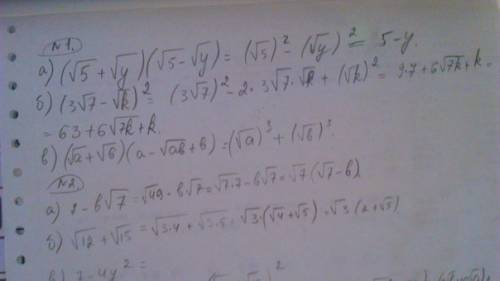 №1.
а) (√5 + √y)(√5 - √y) = (√5)² - (√y)² = 5-y.
б) (3√7 - √k)² = (3√7)² - 2·3√7·√k + (√k)² = 9·7 + 6√7k + k =
= 63 + 6√7k + k.
в) (√a + √b)(a - √ab + b) = (√a)³ + (√b)³
№2.
а) 7 - b√7 = √49 - b√7 = √7·7 - b√7 = √7(√7 - b)
б) √12 + √15 = √3·4 + √3·5 = √3·(√4 + √5) = √3(2 + √5)
в) 7 - 4y² =